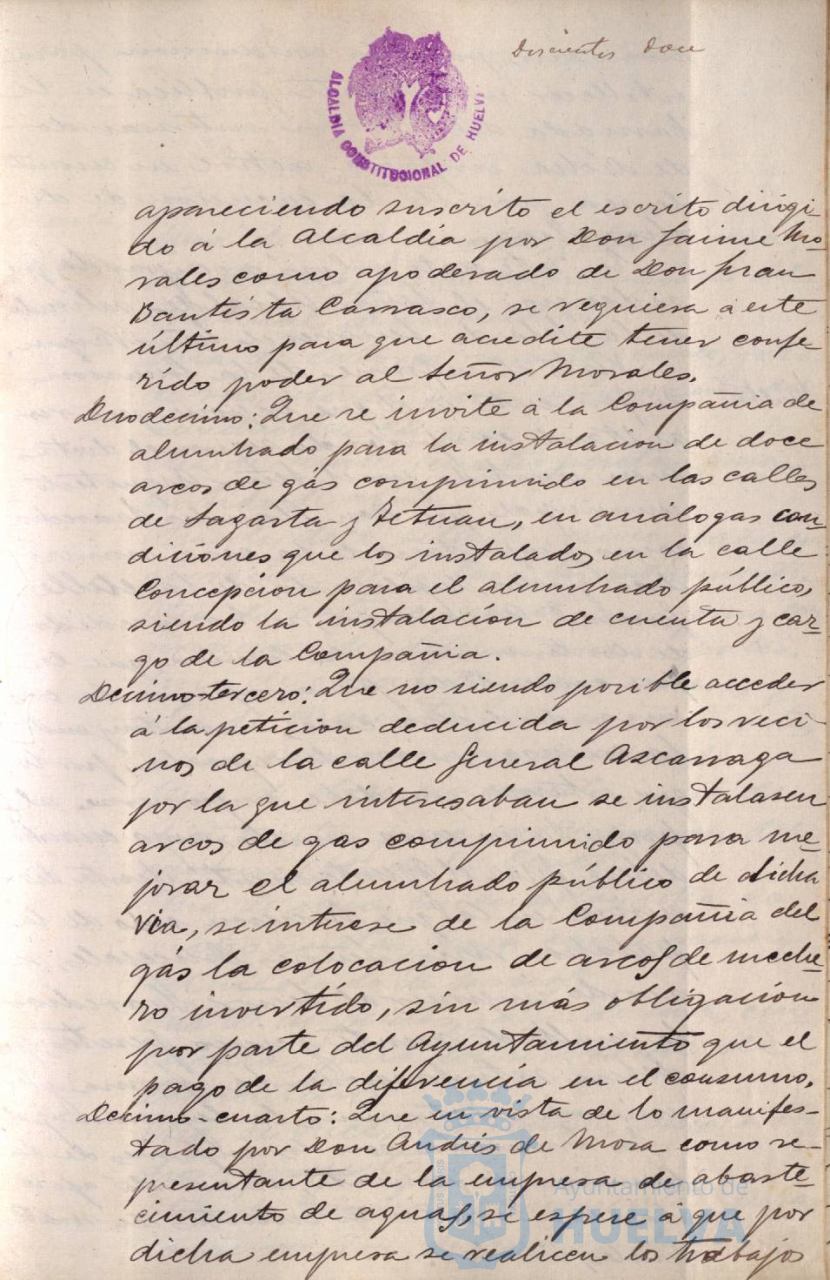 Doscientos doce
ALCALDIA CONSTITUCIONAL DE HUELVA
apareciendo suscrito el escrito dirigi-
do á la Alcaldía por Don Jaime Mo-
rales como apoderado de Don Juan
Bautista Carrasco, se requiera á este
último para que acredite tener confe-
rido poder al Señor Morales.
Duodecimo: Que se invite á la Compañia de
alumbrado para la instalacion de doce
arcos de gas comprimido en las calles
de Sagasta y Tetuan, en análogas con-
diciones que los instalados en la calle
Concepcion para el alumbrado público,
siendo la instalacion de cuenta y car-
go de la Compañia.
Decimo-tercero: Que no siendo posible acceder
á la peticion deducida por los veci-
nos de la calle General Azcarraga
por la que interesaban se instalasen
arcos de gas comprimido para me-
jorar el alumbrado público de dicha
via, se interese de la Compañia del
gás la colocacion de arcos de meche-
ro invertido, sin más obligación
por parte del Ayuntamiento que el
pago de la diferencia en el consumo.
Decimo-cuarto: Que en vista de lo manifes-
tado por Don Andrés de Mora como re-
presentante de la empresa de abaste-
cimiento de aguas, se espere á que por
dicha empresa se realicen los trabajos
Ayuntamiento de
HUELVA